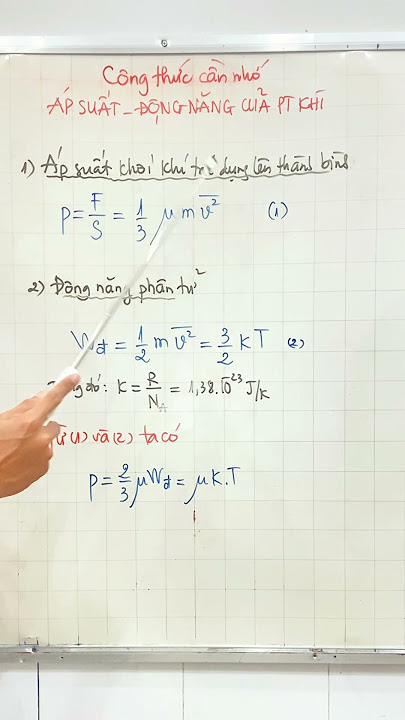 Công thức cần nhớ
ÁP SUẤT _ ĐỘNG NĂNG CỦA PT KHÍ
1) Áp suất chất khí tác dụng lên thành bình
P = F/S = 1/3 μ m v̅²̅ (1)
2) Động năng phân tử
Wđ = 1/2 m v̅²̅ = 3/2 K T (2)
đó: K = R/N_A = 1,38.10²³ J/K
(1) và (2) ta có
P = 2/3 μ Wđ = μ K.T